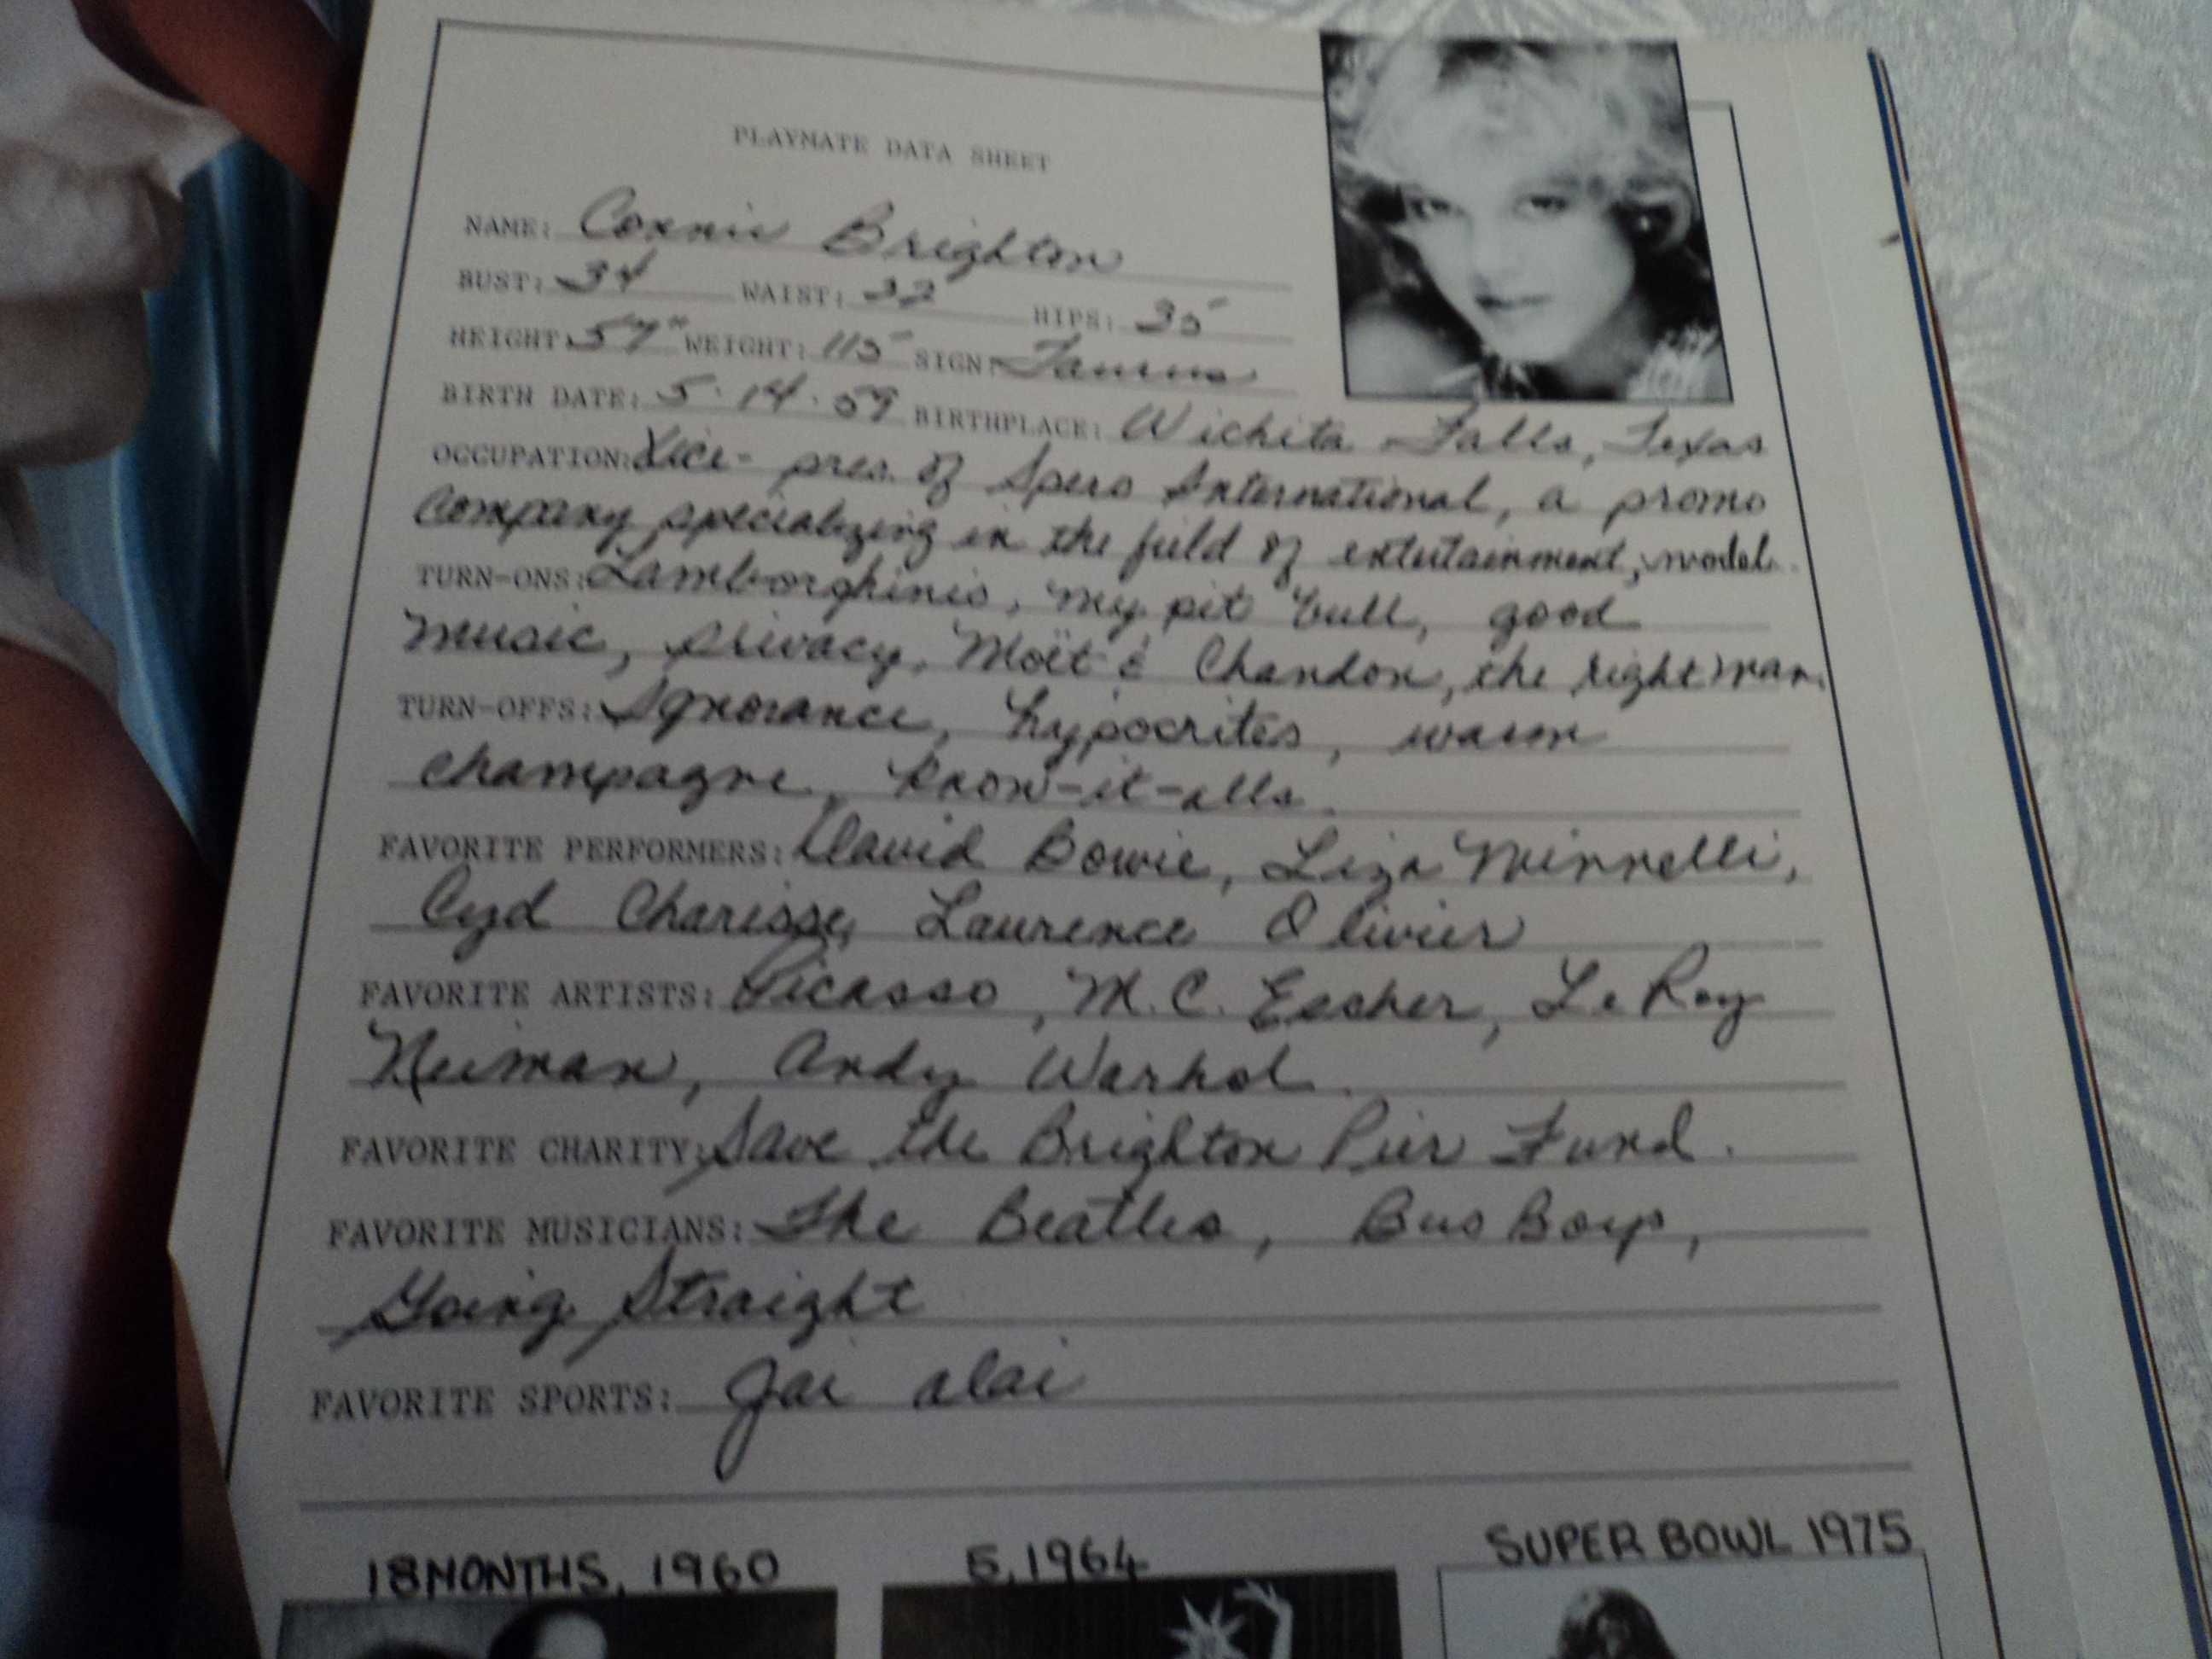 PLAYMATE DATA SHEET
NAME: Connie Brighton
BUST: 34 WAIST: 22 HIPS: 35
HEIGHT: 5'7" WEIGHT: 115 SIGN: Taurus
BIRTH DATE: 5.14.59 BIRTHPLACE: Wichita Falls, Texas
OCCUPATION: Vice-pres. of Spero International, a promo
company specializing in the field of entertainment; model.
TURN-ONS: Lamborghinis, my pit bull, good
music, privacy, Moët & Chandon, the right man.
TURN-OFFS: Ignorance, hypocrites, warm
champagne, know-it-alls.
FAVORITE PERFORMERS: David Bowie, Liza Minnelli,
Cyd Charisse, Laurence Olivier
FAVORITE ARTISTS: Picasso, M.C. Escher, LeRoy
Neiman, Andy Warhol.
FAVORITE CHARITY: Save the Brighton Pier Fund.
FAVORITE MUSICIANS: The Beatles, Bus Boys,
Going Straight
FAVORITE SPORTS: Jai alai
18 MONTHS, 1960 5, 1964 SUPER BOWL 1975